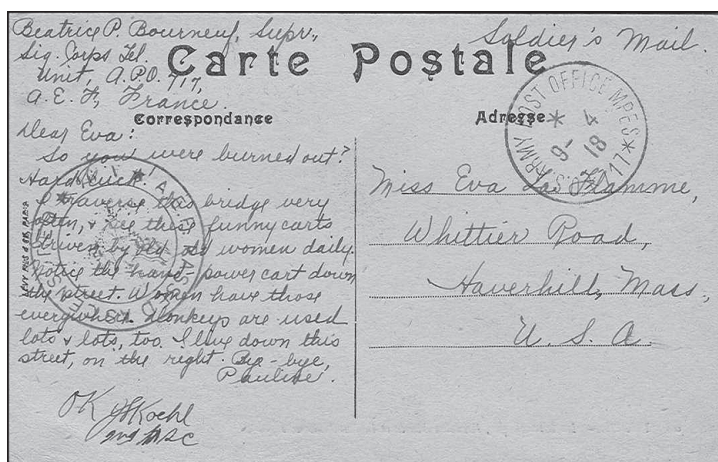 Beatrice P. Bourneuf, Supr.,
Sig. Corps Tel.
Unit, A.P.O. 717,
A.E.F., France.
Soldier's Mail.
Carte Postale
Correspondance
Adresse
Dear Eva:
So you were burned out?
Hard luck.
I traverse this bridge very
often, & see those funny carts
driven by old women daily.
Notice the hand-power cart down
the street. Women have those
everywhere. Donkeys are used
lots & lots, too. I live down this
street, on the right. Bye-bye,
Pauline.
OK
Miss Eva La Flamme,
Whittier Road,
Haverhill, Mass.,
U. S. A.
U.S. ARMY POST OFFICE MPES
717
9- 4
18